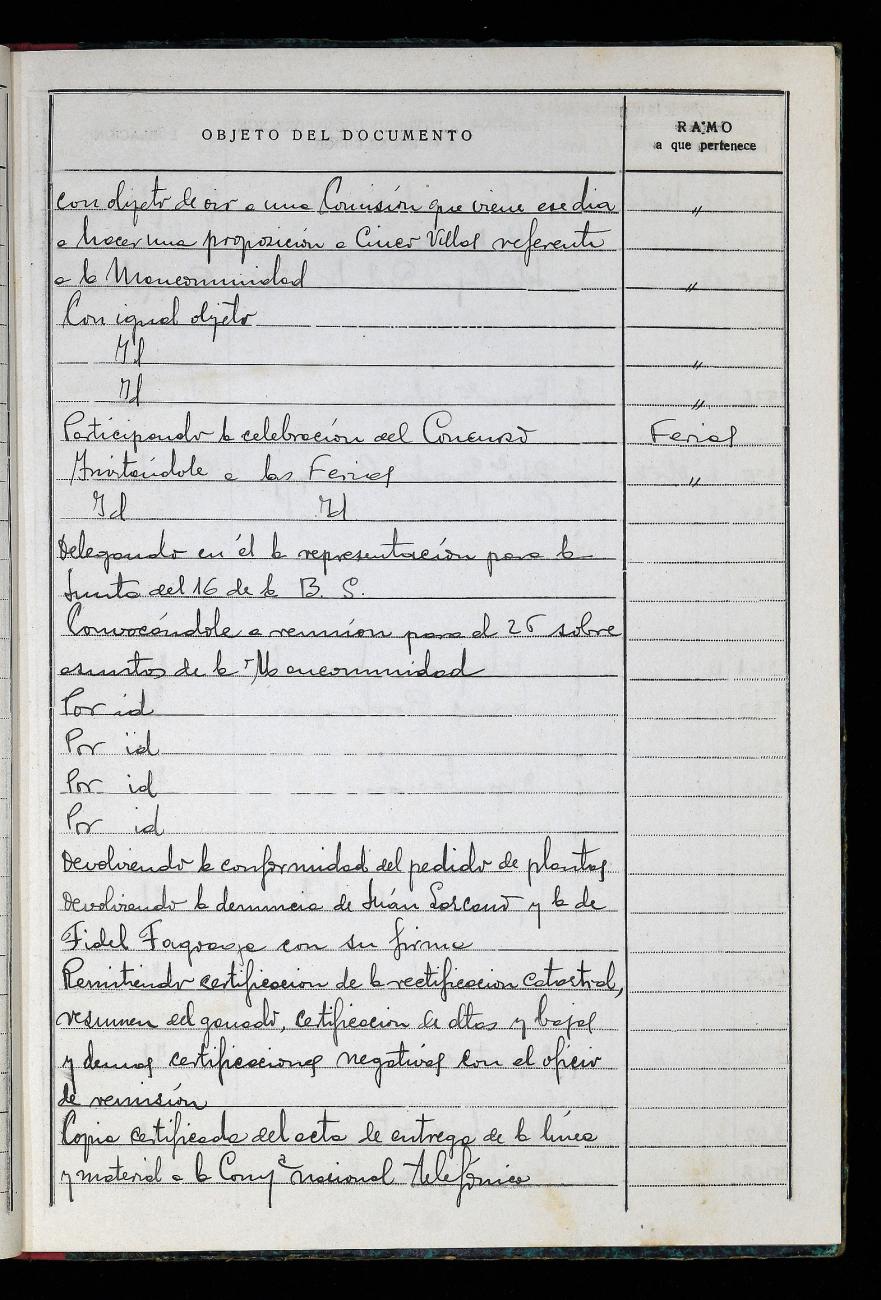 OBJETO DEL DOCUMENTO
RAMO
a que pertenece
con objeto de oir a una Comisión que viene ese dia "
a hacer una proposición a Cinco Villas referente
a la Mancomunidad "
Con igual objeto
Id "
Id "
Participando la celebración del Concurso Ferias
Invitándole a las Ferias "
Id Id
Delegando en él la representación para la
Junta del 16 de la B. S.
Convocándole a reunión para el 26 sobre
asuntos de la Mancomunidad
Por id
Por id
Por id
Por id
Devolviendo la conformidad del pedido de plantas
Devolviendo la denuncia de Juán Lascano y la de
Fidel con su firma
Remitiendo certificacion de la rectificacion catastral,
resumen del ganado, certificacion de altas y bajas
y demas certificaciones negativas con el oficio
de remisión
Copia certificada del acta de entrega de la linea
y material a la Compª nacional Telefónica